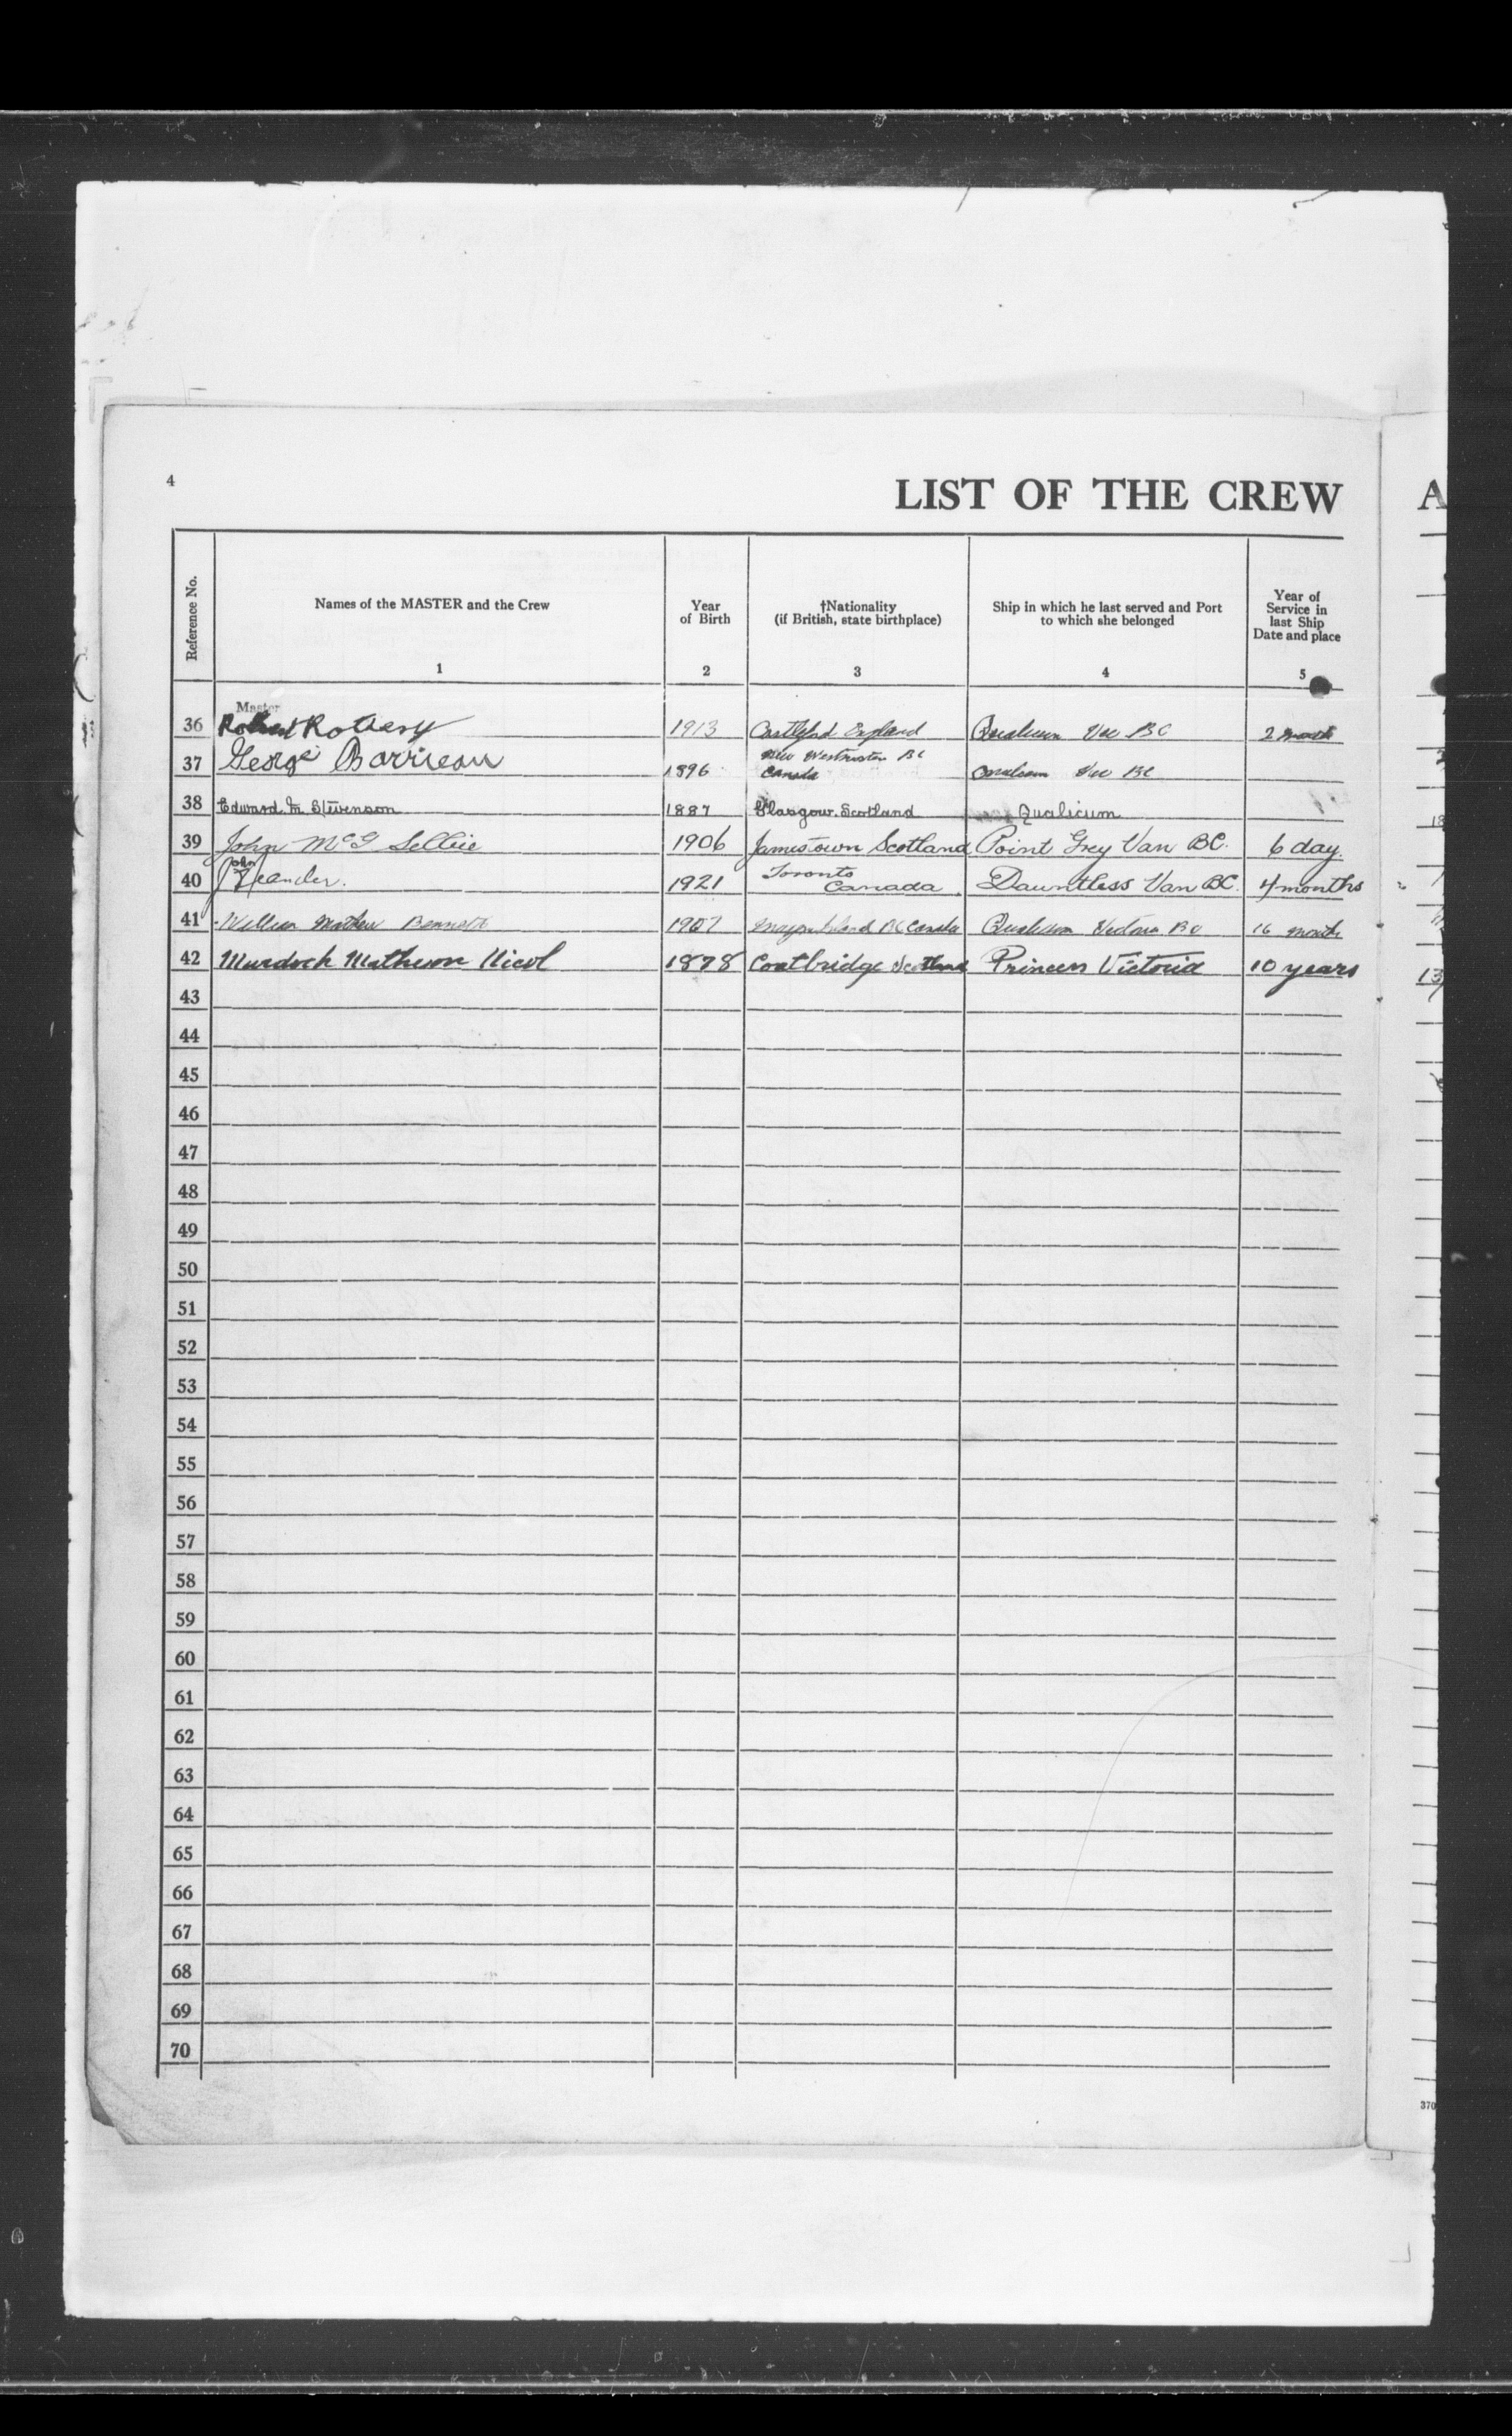 4
LIST OF THE CREW
A
Reference No.
Names of the MASTER and the Crew
Year
of Birth
†Nationality
(if British, state birthplace)
Ship in which he last served and Port
to which she belonged
Year of
Service in
last Ship
Date and place
1 2 3 4 5
Master
36 Robert Rothery 1913 Castleford England Qualicum Vic BC 2 month
37 George Barrieau 1896 New Westminster BC
Canada Qualicum Vic BC
38 Edward M Stevenson 1887 Glasgow. Scotland Qualicum
39 John McG 1906 Jamestown Scotland Point Grey Van BC. 6 day.
John
40 1921 Toronto
Canada. Dauntless Van BC. 4 months
41 William Mathew Bennett 1907 Mayne Island BC Canada Qualicum Victoria BC 16 month
42 Murdoch Matheson Nicol 1878 Coatbridge Scotland Princess Victoria 10 years
13
43
44
45
46
47
48
49
50
51
52
53
54
55
56
57
58
59
60
61
62
63
64
65
66
67
68
69
70
370